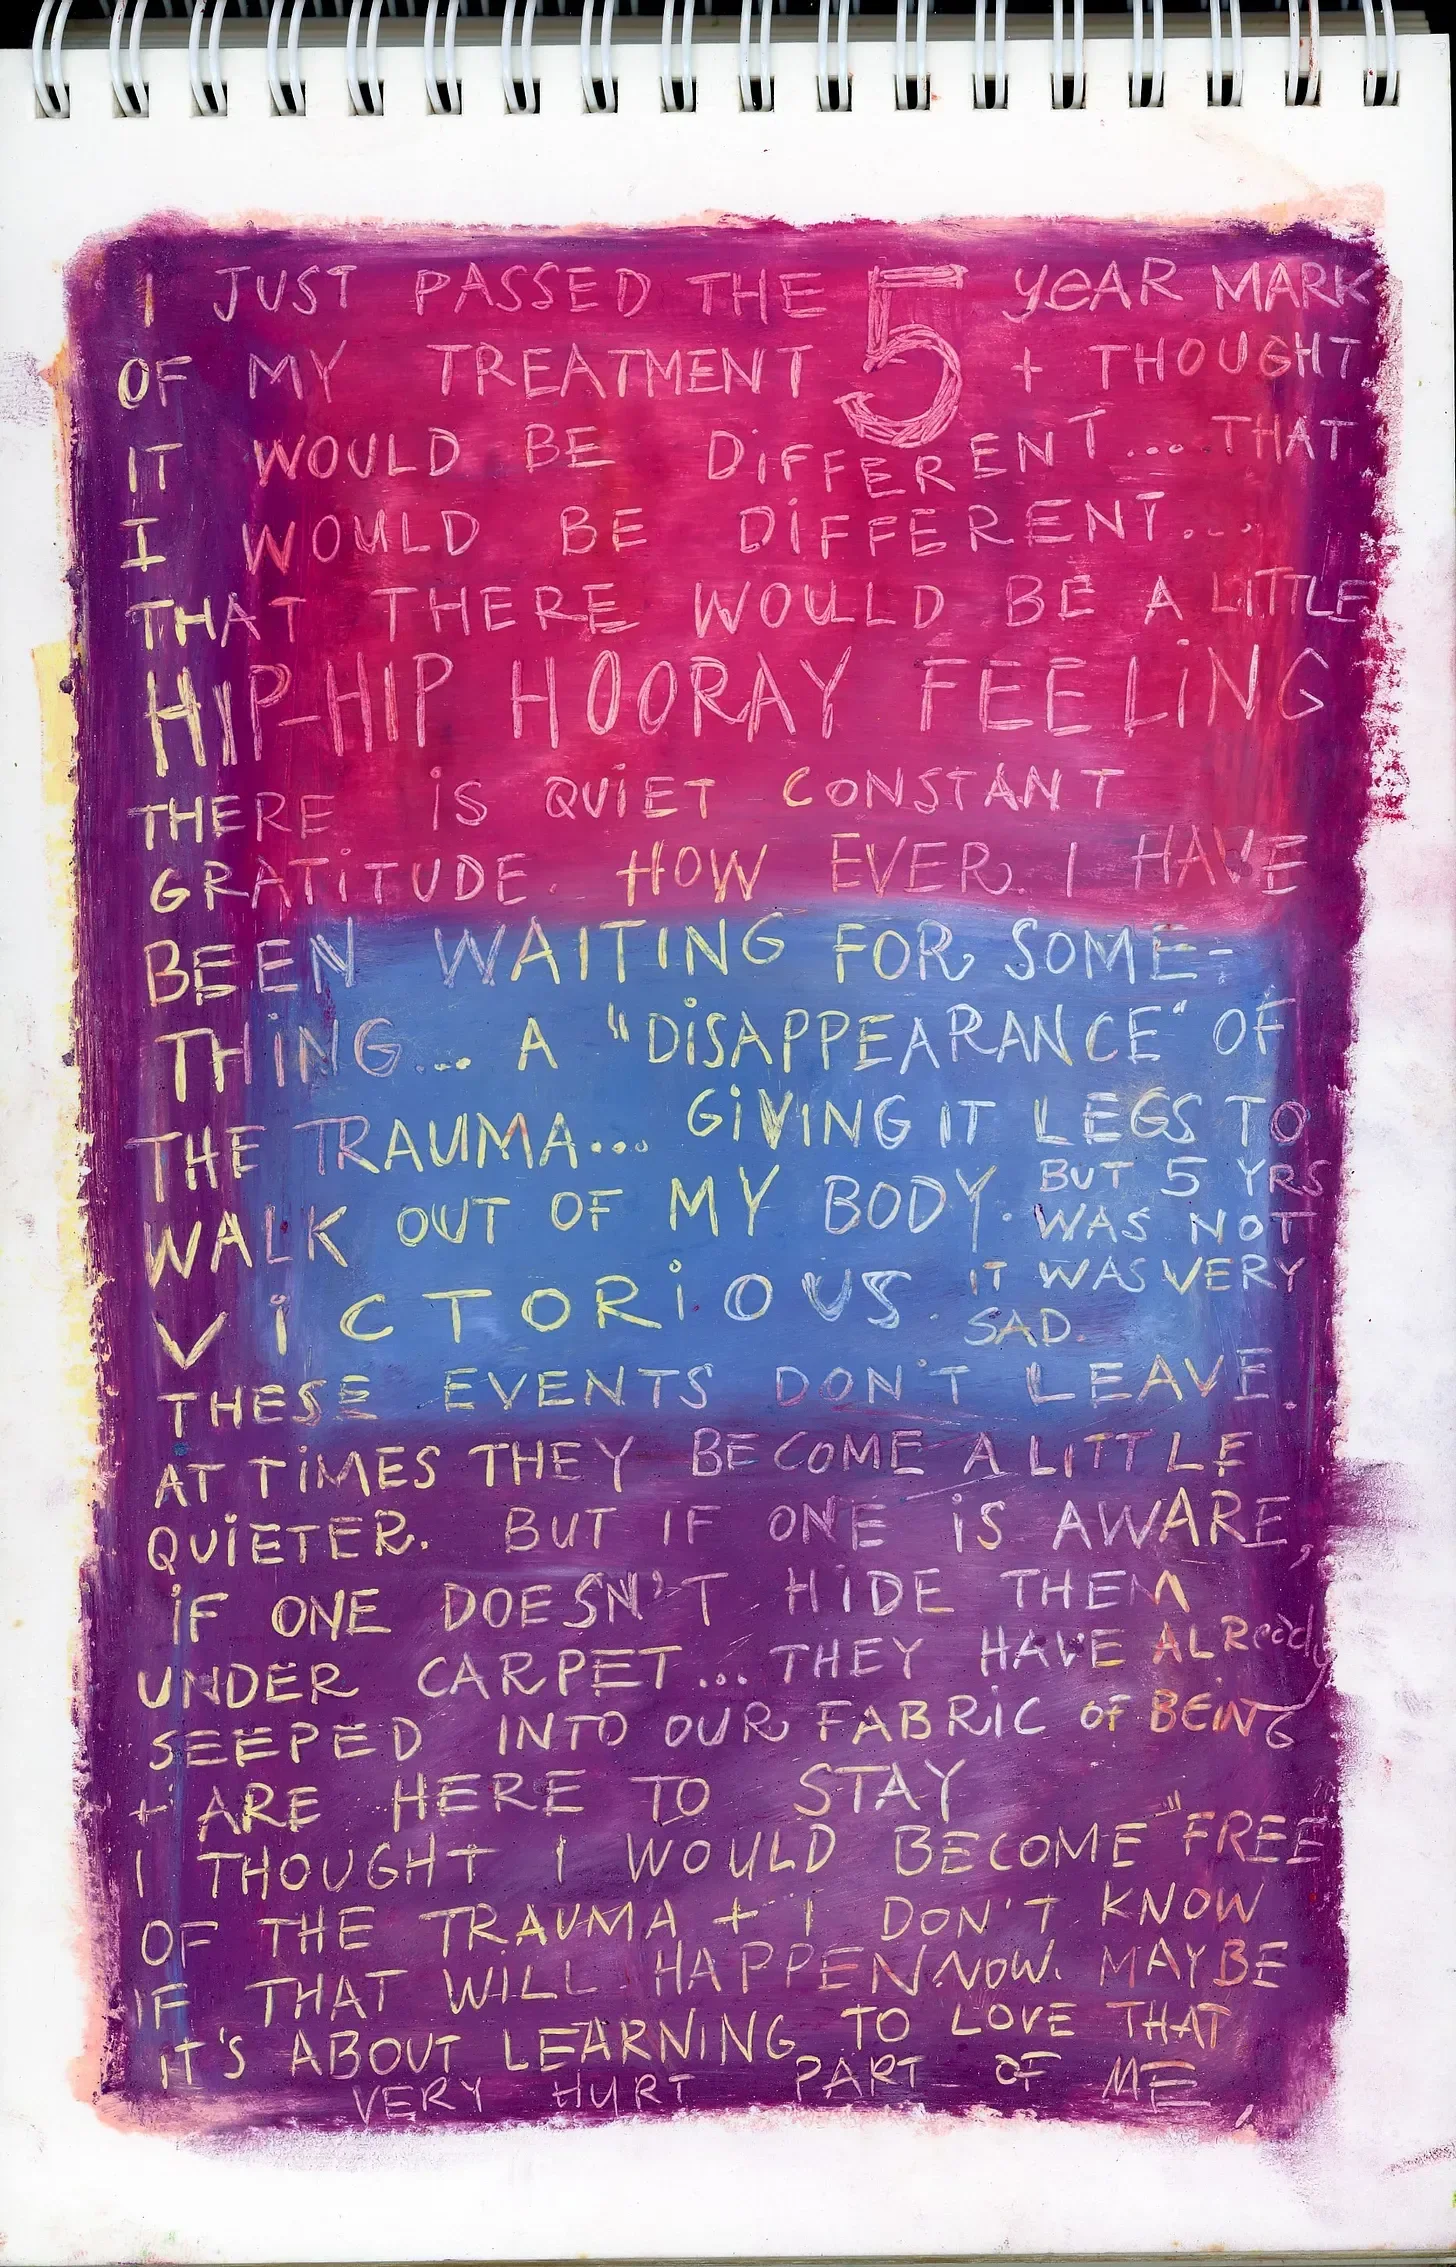 I JUST PASSED THE 5 YEAR MARK
OF MY TREATMENT + THOUGHT
IT WOULD BE DIFFERENT... THAT
I WOULD BE DIFFERENT...
THAT THERE WOULD BE A LITTLE
HIP-HIP HOORAY FEELING
THERE IS QUIET CONSTANT
GRATITUDE. HOW EVER. I HAVE
BEEN WAITING FOR SOME-
THING... A "DISAPPEARANCE" OF
THE TRAUMA... GIVING IT LEGS TO
WALK OUT OF MY BODY. BUT 5 YRS
WAS NOT
VICTORIOUS. IT WAS VERY
SAD.
THESE EVENTS DON'T LEAVE.
AT TIMES THEY BECOME A LITTLE
QUIETER. BUT IF ONE IS AWARE,
IF ONE DOESN'T HIDE THEM
UNDER CARPET... THEY HAVE ALREADY
SEEPED INTO OUR FABRIC OF BEING
+ ARE HERE TO STAY
I THOUGHT I WOULD BECOME "FREE"
OF THE TRAUMA + I DON'T KNOW
IF THAT WILL HAPPEN NOW. MAYBE
IT'S ABOUT LEARNING TO LOVE THAT
VERY HURT PART OF ME,